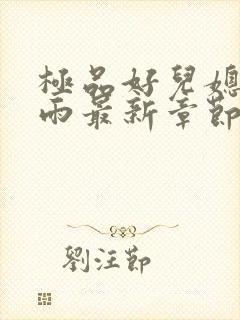 極品好兒媳
雨最新章節
劉汪節